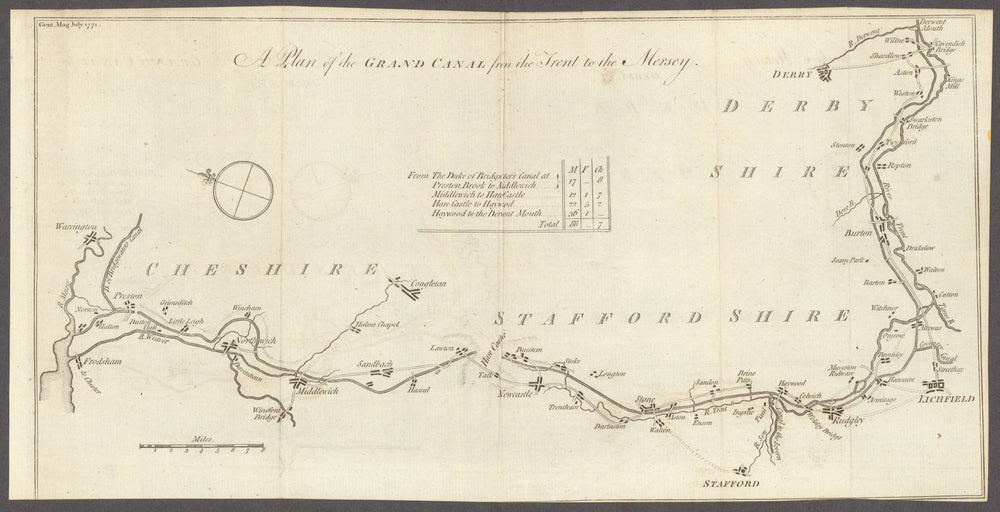 Gent. Mag. July 1771.
A Plan of the GRAND CANAL from the Trent to the Mersey.
M F Ch
From The Duke of Bridgwater's Canal at
Preston Brook to Middlewich 17 — 8
Middlewich to Hare Castle 12 1 7
Hare Castle to Haywood 22 5 2
Haywood to the Derwent Mouth 36 1 —
Total 88 — 7
DERBY SHIRE
CHESHIRE
STAFFORD SHIRE
Derwent Mouth
R. Derwent
Willne
Cavendish Bridge
Shardlow
DERBY
Aston
Kings Mill
Weston
Swarkston Bridge
Twyford
Stenson
Repton
River Trent
Dove R.
Burton
Drakelow
Walton
Barton
Catton
Tame R.
Witchnor
Alrewas
Coventry Canal
Streethay
LICHFIELD
Hancour
Armitage
Rudgley
Colwich
Haywood
Brine Pitts
Sandon
Ingstre
Tixal
R. Sow
STAFFORD
R. Trent
Enson
Aston
Stone
Walton
Darlaston
Trentham
Longton
Stoke
Newcastle
Burslem
Talk
Hare Castle
Lawton
Hassal
Sandbach
Congleton
Holms Chapel
Middlewich
Winsford Bridge
Davenham
Northwich
Wincham
Little Leigh
Grimsditch
Dutton Hall
R. Weaver
Preston
D. of Bridgwater's Canal
Warrington
R. Mersey
Norton
Halton
Frodsham
to Chester
Miles.
1 2 3 4 5 6 7 8